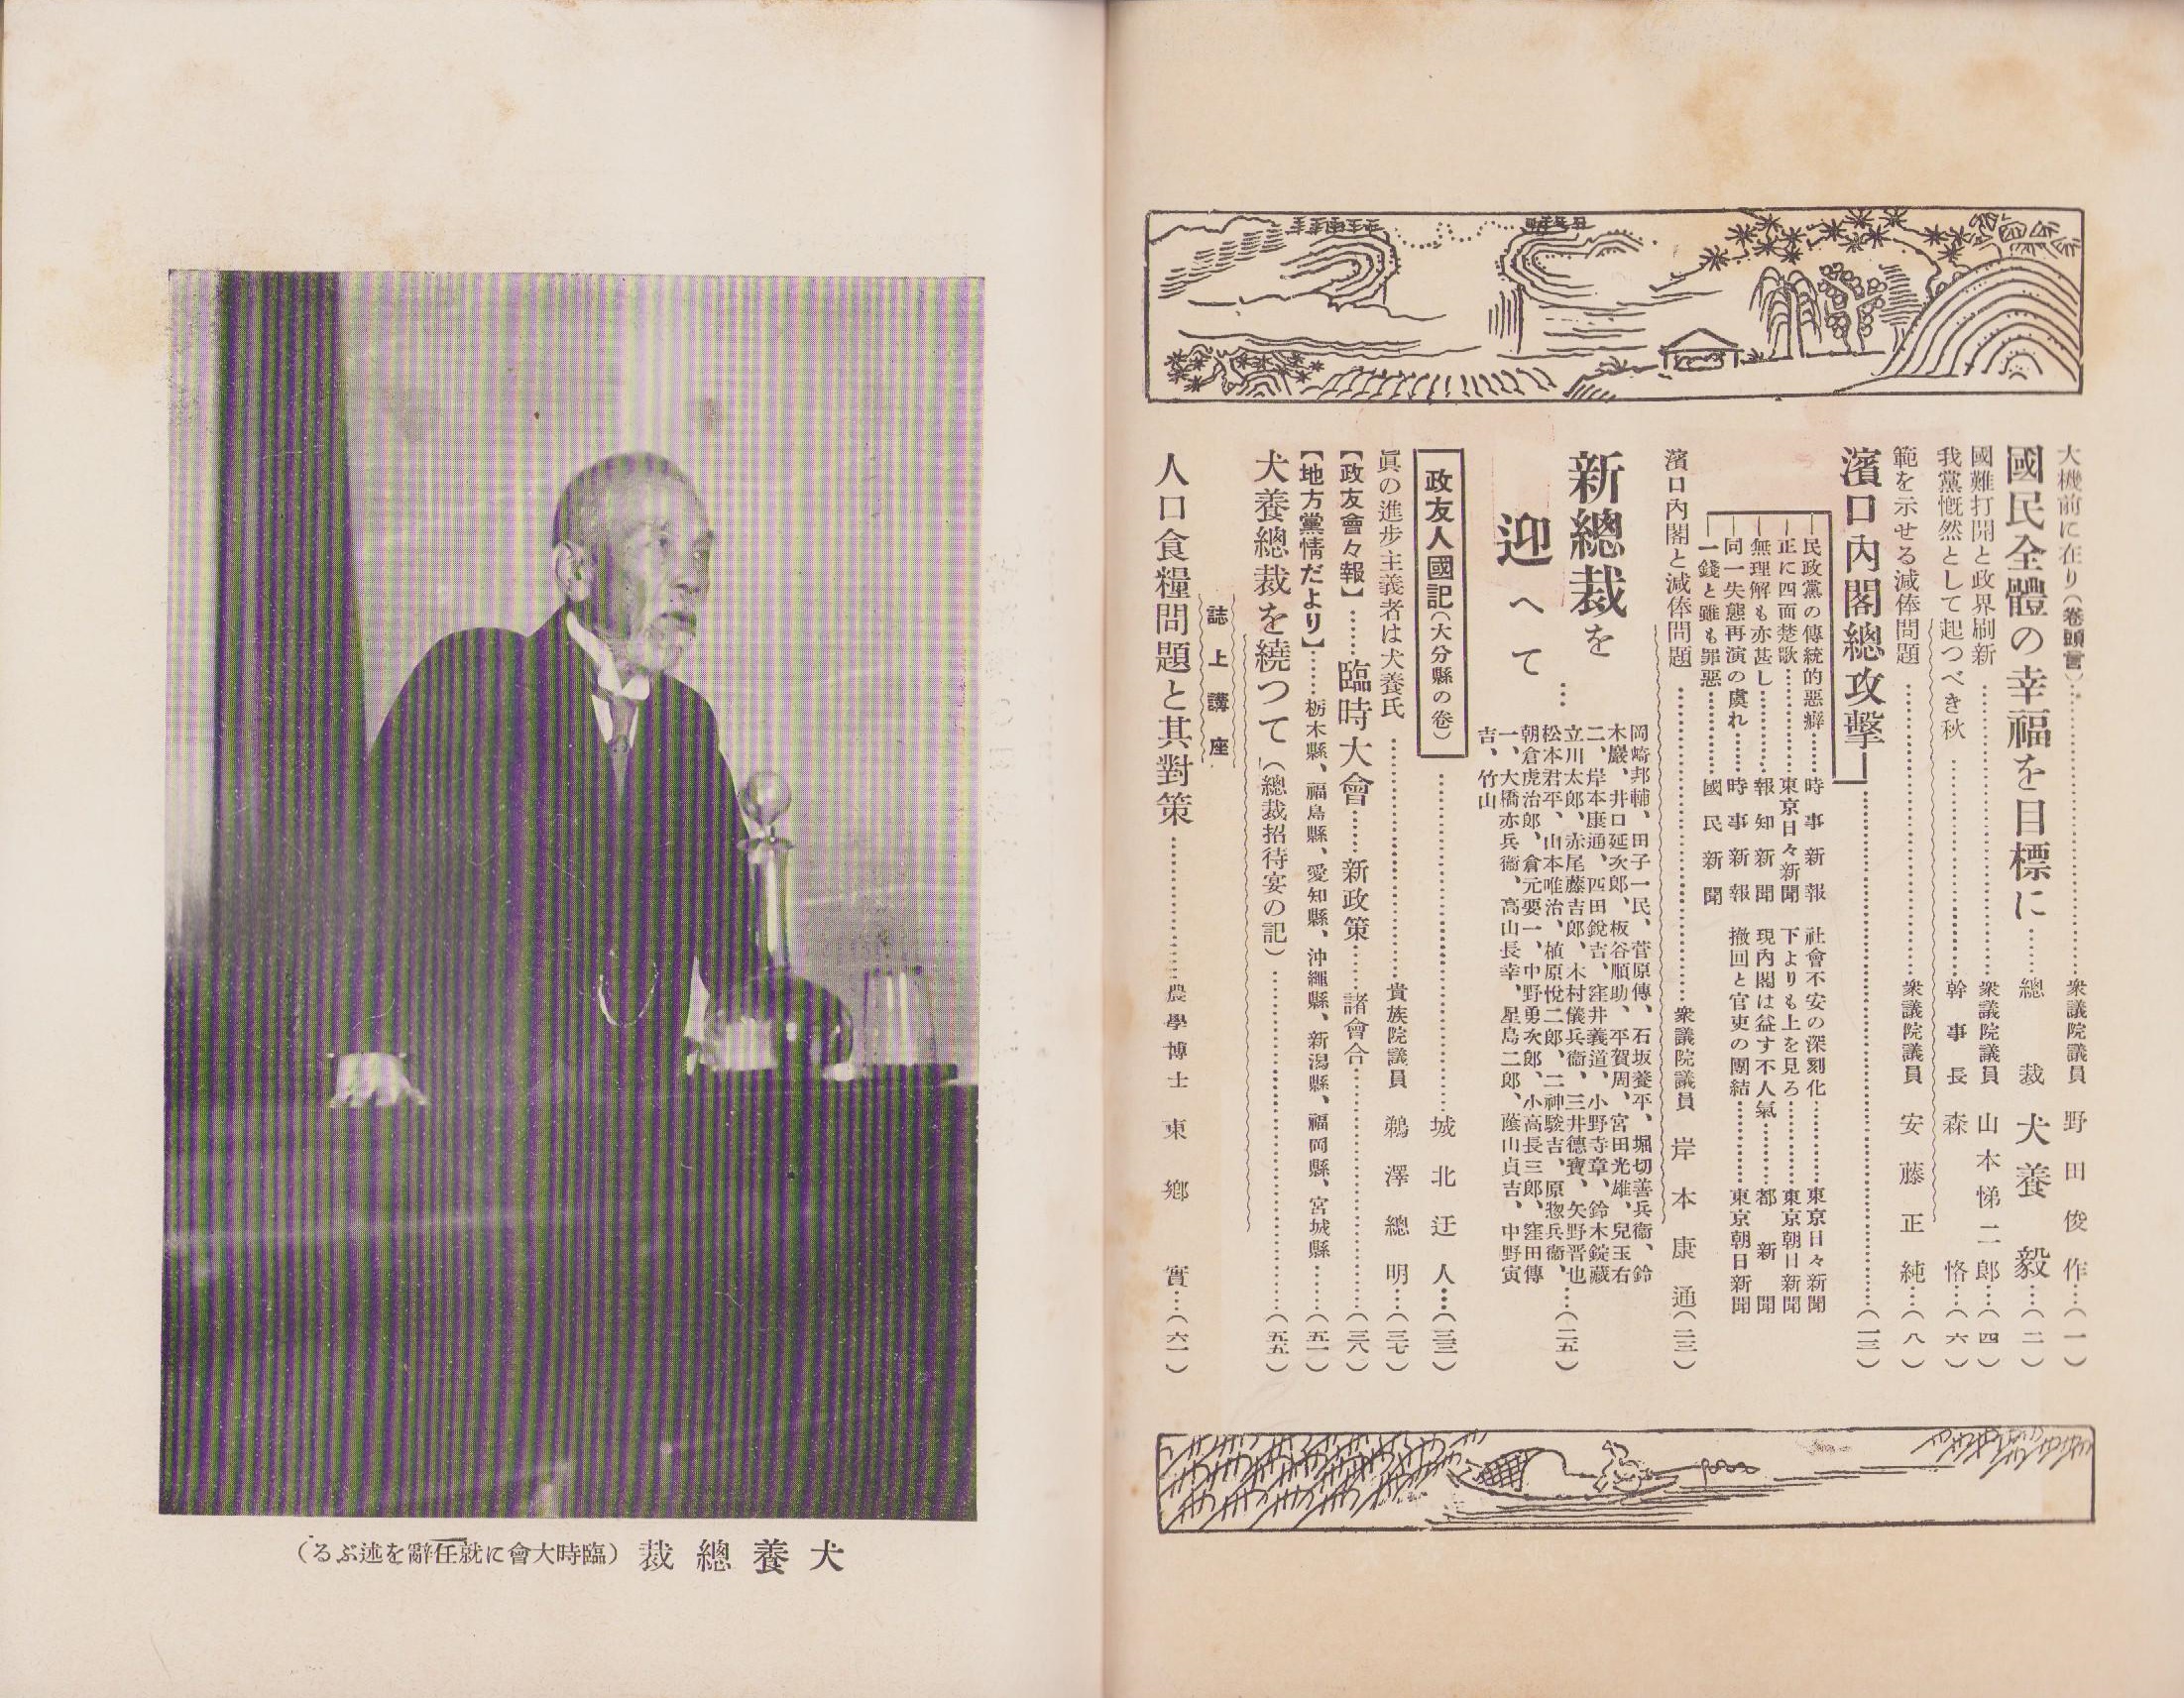 大機前に在り(卷頭言)…衆議院議員 野田俊作…(一)
國民全體の幸福を目標に……總裁 犬養毅…(二)
國難打開と政界刷新……衆議院議員 山本悌二郎…(四)
我黨慨然として起つべき秋……幹事長 森恪…(六)
範を示せる減俸問題……衆議院議員 安藤正純…(八)
濱口內閣總攻擊……(一三)
民政黨の傳統的惡癖……時事新報
社會不安の深刻化……東京日々新聞
正に四面楚歌……東京日々新聞
下よりも上を見ろ……東京朝日新聞
無理解も亦甚し……報知新聞
現內閣は益す不人氣……都新聞
同一失態再演の虞れ……時事新報
撤回と官吏の團結……東京朝日新聞
一錢と雖も罪惡……國民新聞
濱口內閣と減俸問題……衆議院議員 岸本康通(二三)
新總裁を
迎へて…
岡崎邦輔、田子一民、菅原傳、石坂養平、堀切善兵衞、鈴
木巖、井口延次郎、板谷順助、平賀周、宮田光雄、兒玉右
二、岸本康通、匹田銳吉、窪井義道、小野寺章、鈴木錠藏
立川太郎、赤尾藤吉郎、木村儀兵衞、三井德寶、矢野晋也…(二五)
松本君平、山本唯治、植原悅二郎、二神駿吉、原惣兵衞、
朝倉虎治郎、倉元要一、中野勇次郎、小高長三郎、窪田傳
一、大橋亦兵衞、高山長幸、星島二郎、蔭山貞吉、中野寅
吉、竹山
政友人國記(大分縣の卷)……城北迂人…(三三)
眞の進步主義者は犬養氏……貴族院議員 鵜澤總明…(三七)
【政友會々報】……臨時大會……新政策……諸會合……(三八)
【地方黨情だより】……栃木縣、福島縣、愛知縣、沖繩縣、新潟縣、福岡縣、宮城縣……(五一)
犬養總裁を繞つて(總裁招待宴の記)……(五五)
誌上講座
人口食糧問題と其對策……農學博士 東鄕實…(六一)
犬養總裁(臨時大會に就任辭を述ぶる)